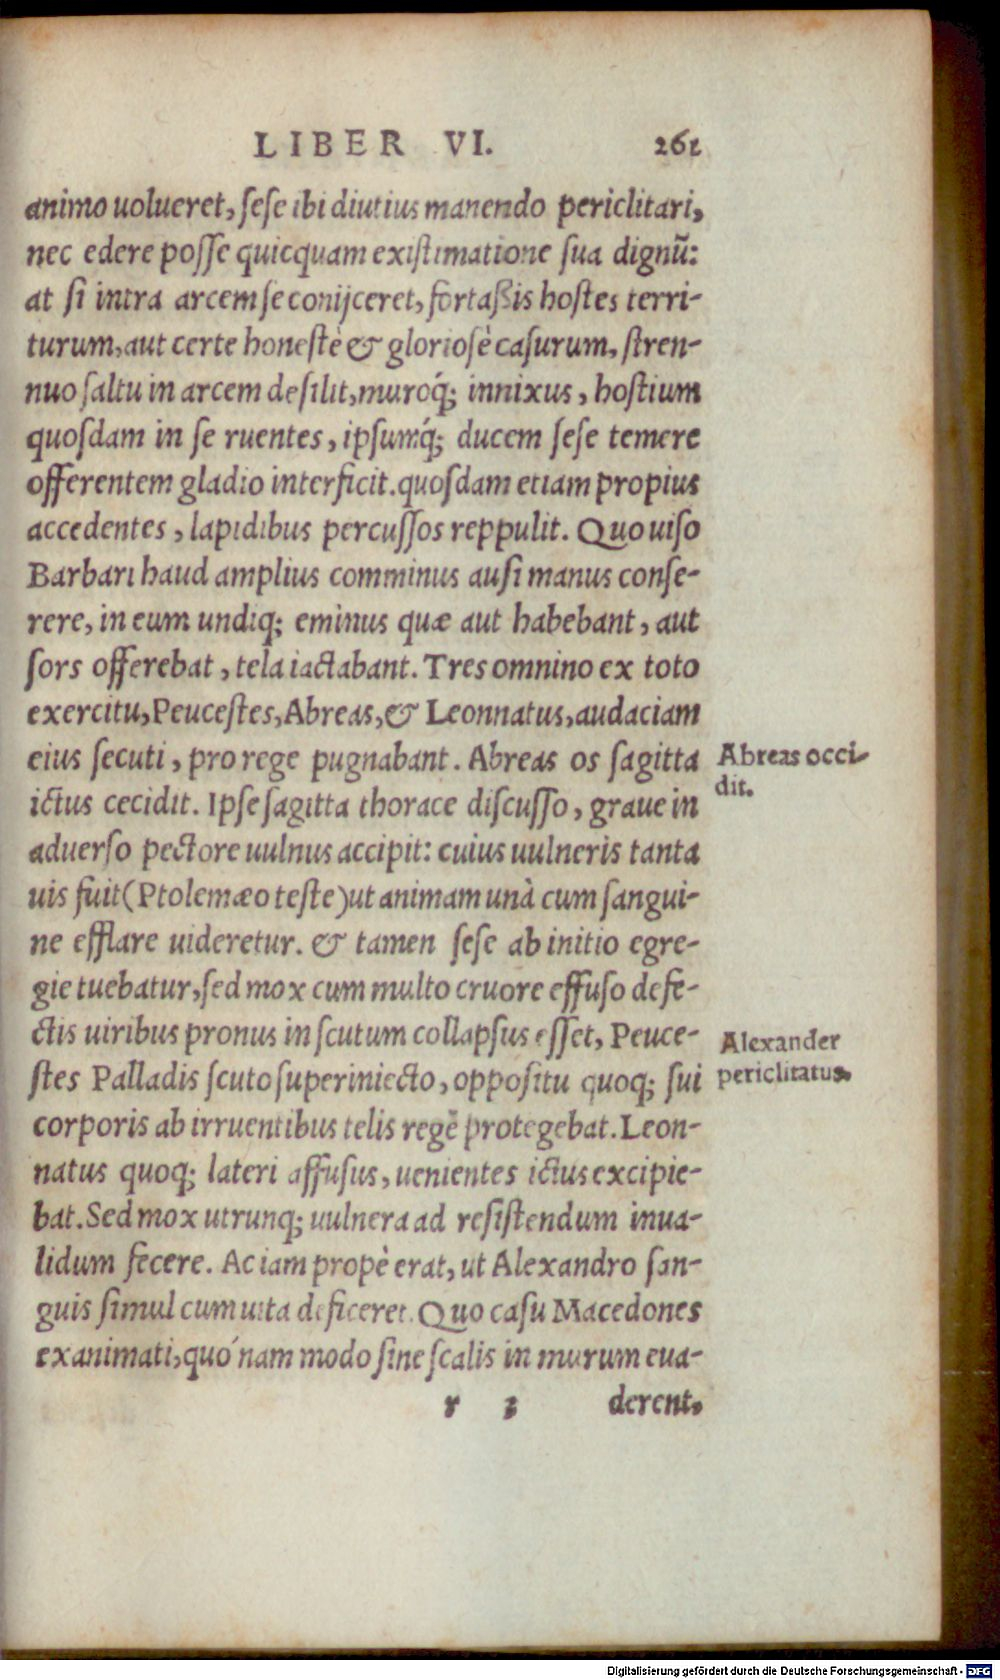 LIBER VI. 261
animo uolueret, sese ibi diutius manendo periclitari,
nec edere posse quicquam existimatione sua dignũ:
at si intra arcem se conijceret, fortaßis hostes terri-
turum, aut certe honestè & gloriosè casurum, stren-
nuo saltu in arcem desilit, muroq́; innixus, hostium
quosdam in se ruentes, ipsumq́; ducem sese temere
offerentem gladio interficit. quosdam etiam propius
accedentes, lapidibus percussos reppulit. Quo uiso
Barbari haud amplius comminus ausi manus conse-
rere, in eum undiq; eminus quæ aut habebant, aut
sors offerebat, tela iactabant. Tres omnino ex toto
exercitu, Peucestes, Abreas, & Leonnatus, audaciam
eius secuti, pro rege pugnabant. Abreas os sagitta
Abreas occi-
dit.
ictus cecidit. Ipse sagitta thorace discusso, graue in
aduerso pectore uulnus accipit: cuius uulneris tanta
uis fuit (Ptolemæo teste) ut animam unà cum sangui-
ne efflare uideretur. & tamen sese ab initio egre-
gie tuebatur, sed mox cum multo cruore effuso defe-
ctis uiribus pronus in scutum collapsus esset, Peuce-
Alexander
periclitatus.
stes Palladis scuto superiniecto, oppositu quoq; sui
corporis ab irruentibus telis regẽ protegebat. Leon-
natus quoq; lateri affusus, uenientes ictus excipie-
bat. Sed mox utrunq; uulnera ad resistendum inua-
lidum fecere. Ac iam propè erat, ut Alexandro san-
guis simul cum uita deficeret. Quo casu Macedones
exanimati, quó nam modo sine scalis in murum eua-
r 3 derent,
Digitalisierung gefördert durch die Deutsche Forschungsgemeinschaft - DFG